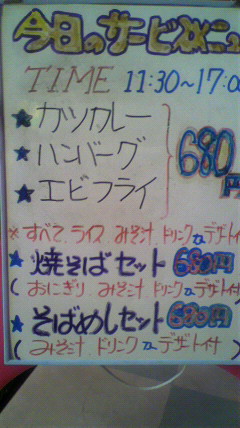 今日のサービスメニュ
TIME 11:30~17:00
★カツカレー
★ハンバーグ
★エビフライ
680円
※すべて ライス みそ汁 ドリンク デザート付
★焼そばセット 680円
(おにぎり みそ汁 ドリンク デザート付
★そばめしセット 680円
(みそ汁 ドリンク デザート付)